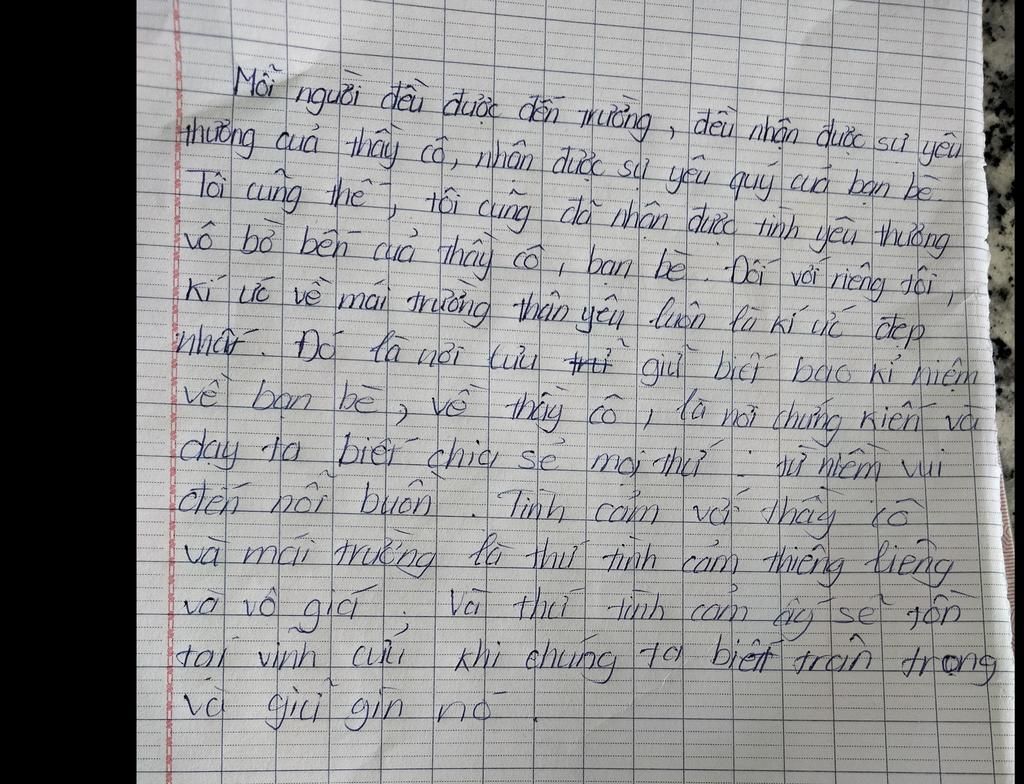 Mỗi người đều được đến trường, đều nhận được sự yêu
thương quả thầy cô, nhận được sự yêu quý của bạn bè.
Tôi cũng thế, tôi cũng đã nhận được tình yêu thương
vô bờ bến của thầy cô, bạn bè. Đối với riêng tôi,
kí ức về mái trường thân yêu luôn là kí ức đẹp
nhất. Đó là nơi lưu giữ biết bao kỉ niệm
về bạn bè, về thầy cô, là nơi chứng kiến và
dạy ta biết chia sẻ mọi thứ : từ niềm vui
đến nỗi buồn. Tình cảm với thầy cô
và mái trường là thứ tình cảm thiêng liêng
và vô giá. Và thứ tình cảm ấy sẽ tồn
tại vĩnh cửu khi chúng ta biết trân trọng
và giữ gìn nó.